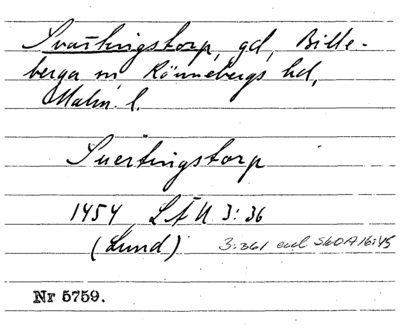 Svärtingstorp, gd, Bille-
berga sn, Rönnebergs hd,
Malm. l.
Suertingstorp
1454 LÄU 3:36
(Lund) 3:361 enl SkOA 16:45
Nr 5759.